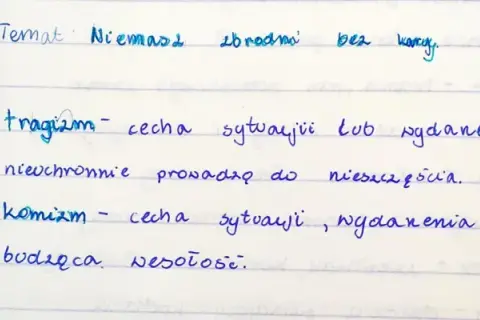 Temat: Niemasz zbrodni bez kary.
tragizm - cecha sytuacji lub wydan
nieuchronnie prowadzą do nieszczęścia.
komizm - cecha sytuacji, wydarzenia
budząca wesołość.